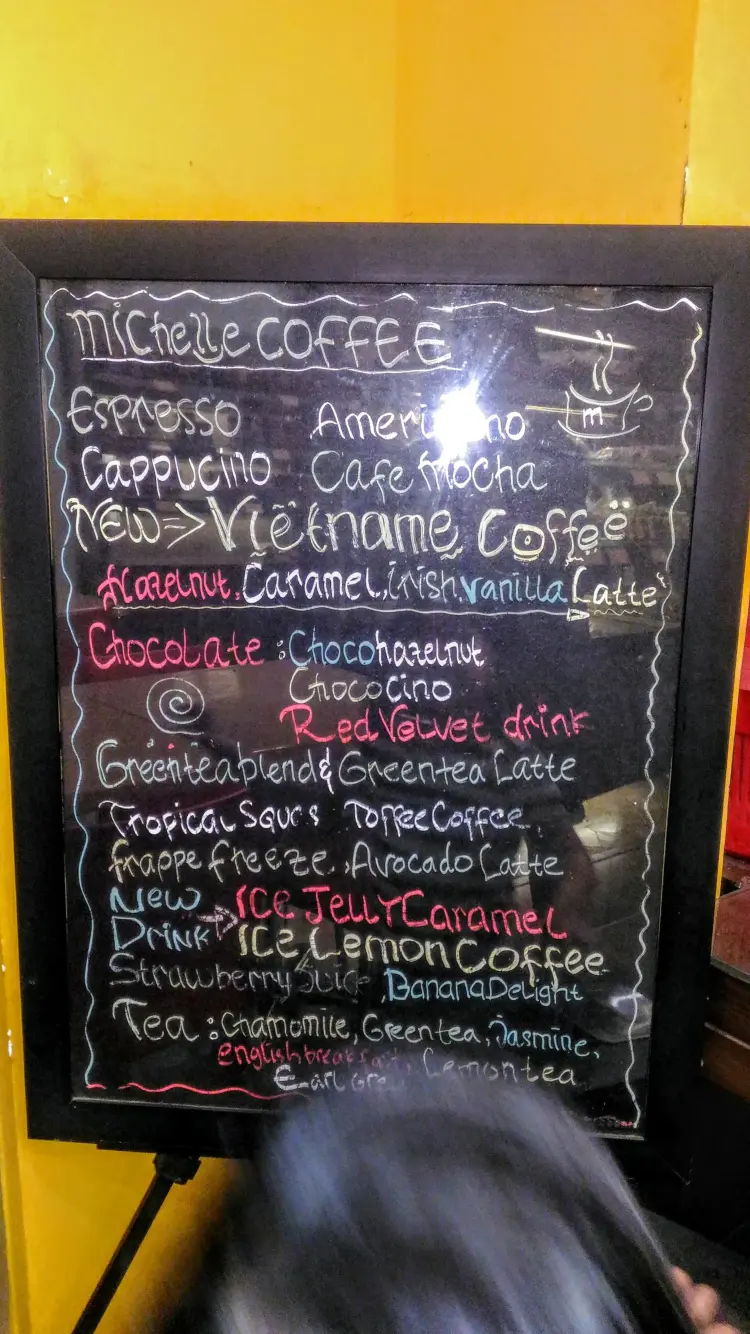 michelle COFFEE
m
Espresso Americano
Cappucino Cafe Mocha
NEW => Viëtname Coffeë
Hazelnut, Caramel, irish, vanilla Latte
Chocolate : Choco hazelnut
Chococino
Red Velvet drink
Greentea blend & Greentea Latte
Tropical Toffee Coffee,
frappe freeze, Avocado Latte
New => ICE JELLY Caramel
Drink ICE Lemon Coffee
Strawberry Juice, Banana Delight
Tea : Chamomile, Green tea, Jasmine,
english breakfast, Lemon tea
Earl Grey